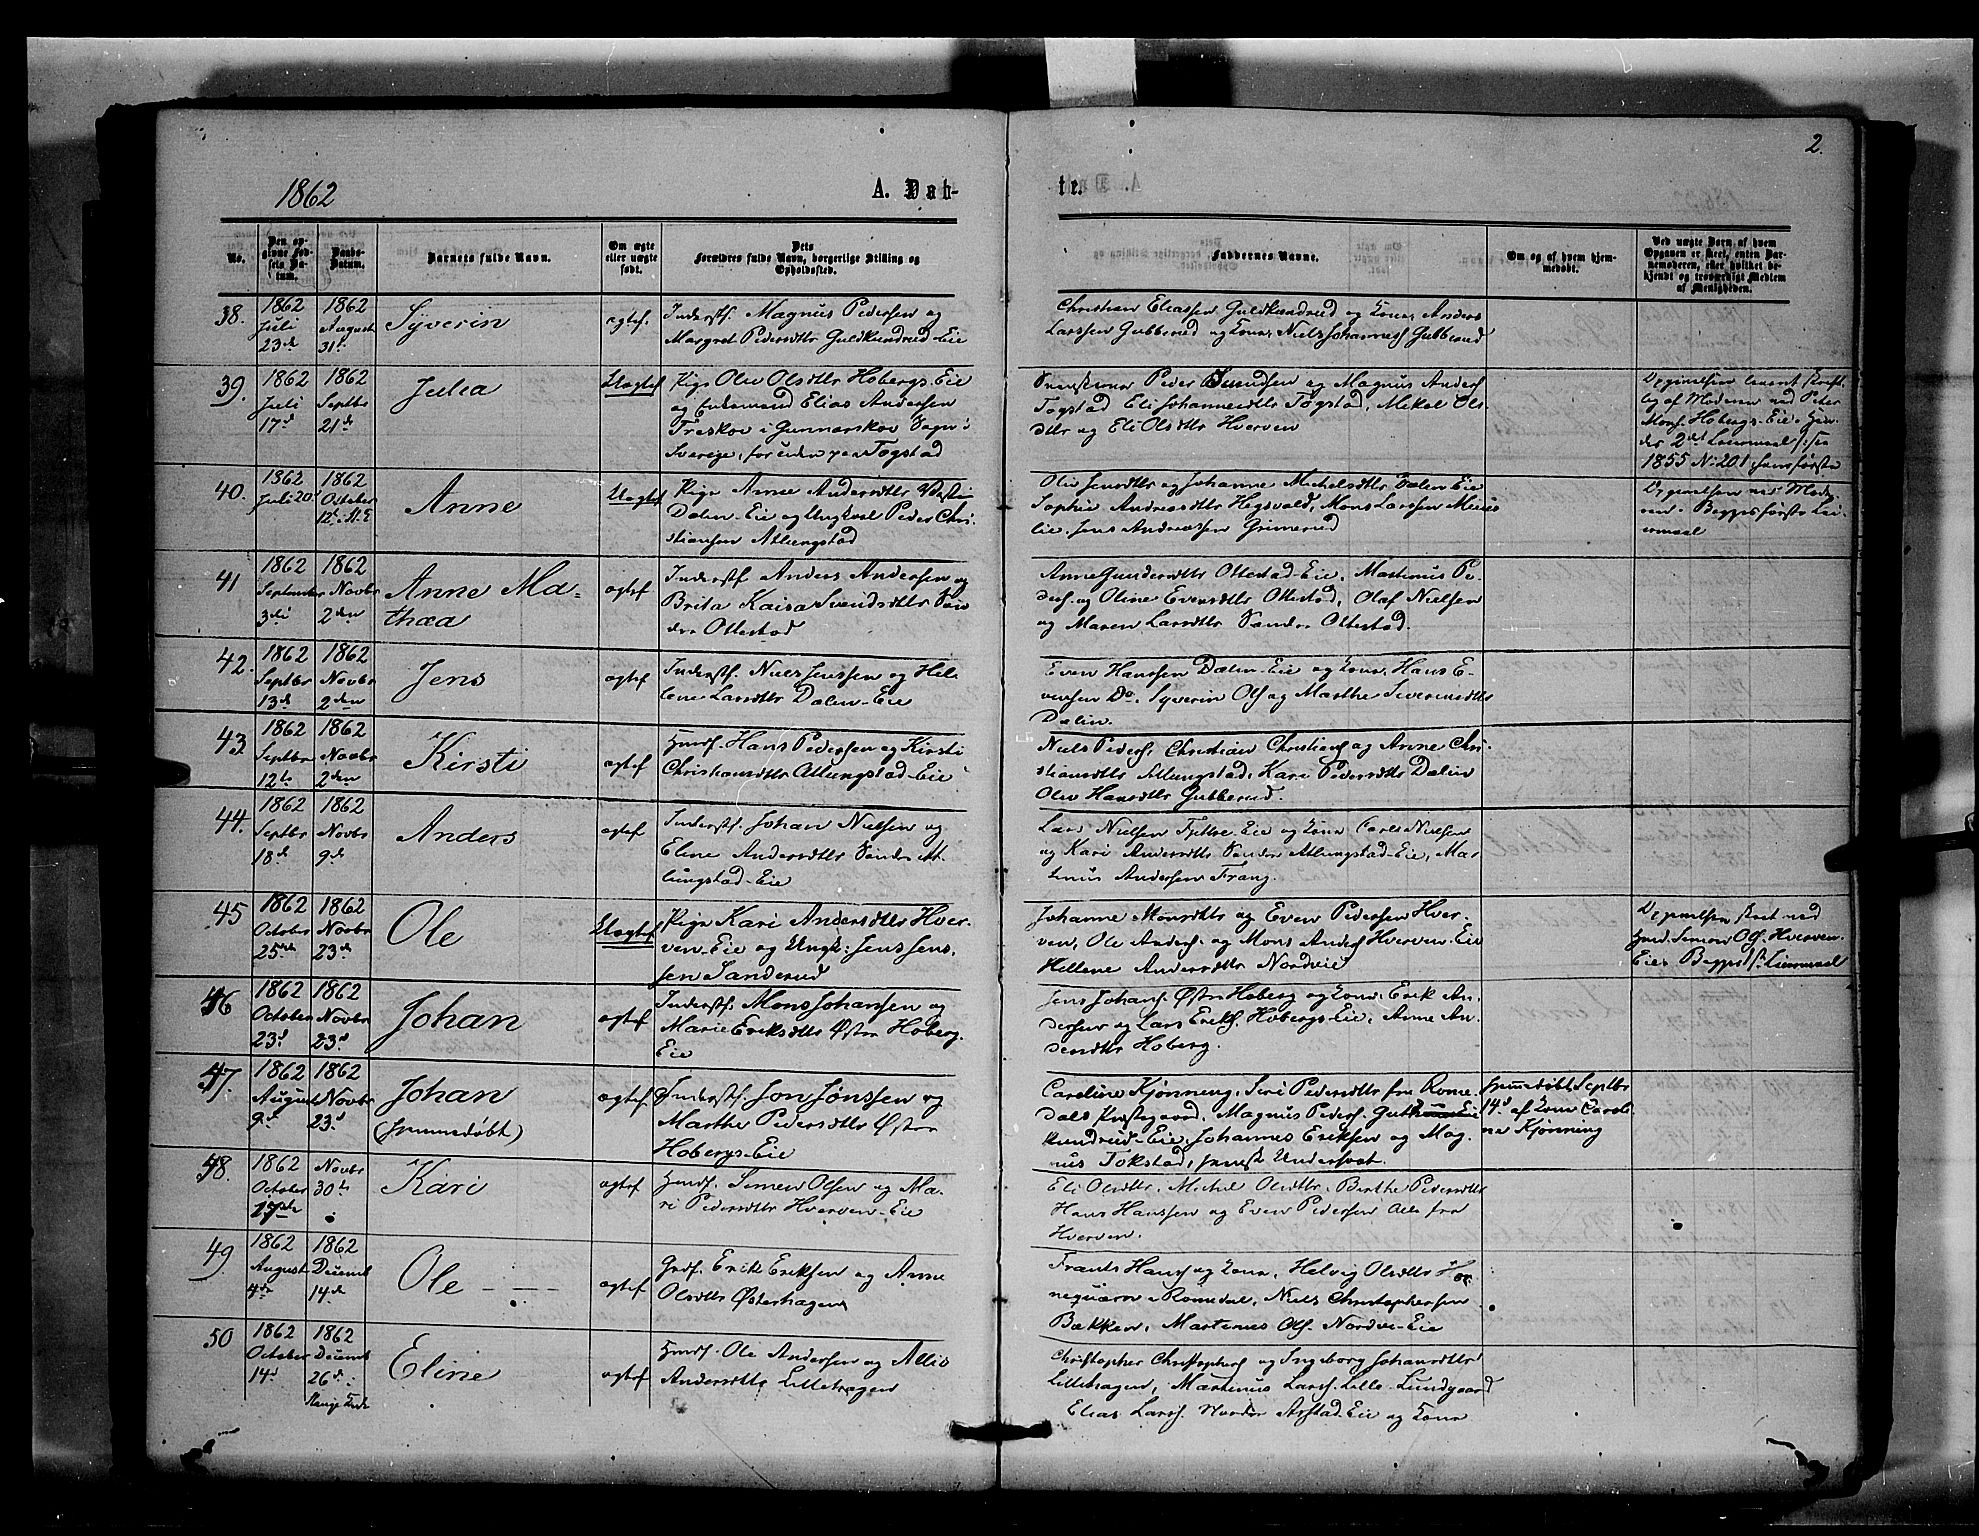 2.
1862
A. Dab-
te.
No.
Den op-
givne Fød-
sels Da-
tum.
Daabs-
Datum.
Barnets fulde Navn.
Om ægte
eller uægte
født.
Dets
Forældres fulde Navn, borgerlige Stilling og
Opholdssted.
Faddernes Navne.
Om og af hvem hjem-
medøbt.
Ved uægte Børn af hvem
Opgaven er skeet, enten Bar-
nemoderen, eller hvilket be-
kjendt og troværdigt Medlem
af Menigheden.
38.
1862
Juli
23de
1862
August
31te
Syverin
ægtef.
Inderstf. Magnus Pedersen og
Margret Pedersdtr Guldkundrud-Eie
Christian Eliassen Guldkundrud og Kona, Anders
Larssen Gubberud og Kona, Niels Johannesf Gubberud
39.
1862
Juli
17de
1862
Septbr
21de
Julia
Uægtef
Pige Oliv Olsdtr Hobergs-Eie
og Enkemand Elias Andersen
Treskov i Gunnarskov Sogn i
Sverige, for tiden paa Togstad
Peder Svendsen og Magnus Andersf
Togstad, Eli Johannesdtr Togstad, Mikal Ols-
dtr og Eli Olsdtr Hverven
af Moderen ved Peter
Monsf. Hobergs-Eie. Hen-
des 2det Leiermaal
1855 No 201, hans første
40.
1862
Juli 20de
1862
October
12te
Anne
Uægtef
Pige Anne Andersdtr
Dalen-Eie og Ungkarl Peder Chri-
stiansen Atlungstad
Oliv Jensdtr og Johanne Michelsdtr Dalen Eie
Sophie Andreasdtr Hegsvold, Mons Larssen
Eie. Jens Andreassen Grimerud
Begges første Lei-
ermaal
41
1862
September
3die
1862
Novbr
2den
Anne Ma-
thea
ægtef
Inderstf Anders Andersen og
Brita Kaisa Svendsdtr Søn-
dre Ottestad
Anne Gundersdtr Ottestad-Eie, Martinus Pe-
dersf. og Oline Evensdtr Ottestad, Olaf Nielsen
og Maren Larsdtr Søndre Ottestad.
42.
1862
Septbr
13de
1862
Novbr
2den
Jens
ægtef
Inderstf. Niels Jenssen og Hel-
ene Larsdtr Dalen-Eie
Even Hanssen Dalen-Eie og Kona, Hans E-
vensen Do. Syverin Olsf og Marthe
Dalen.
43.
1862
Septbr
12te
1862
Novbr
2den
Kirsti
ægtef
Husmf. Hans Pedersen og Kirsti
Christiansdtr Atlungstad-Eie
Niels Pedersf. Christian Christiansf og Anne Chri-
stiansdtr Atlungstad, Kari Pedersdtr Dalen
Oliv Hansdtr Gubberud.
44.
1862
Septbr
18de
1862
Novbr
9de
Anders
ægtef
Inderstf. Johan Nielsen og
Eline Andersdtr Søndre At-
lungstad-Eie
Lars Nielsen Tjette-Eie og Kona Carl Nielsen
og Kari Andersdtr Søndre Atlungstad-Eie, Mar-
tinus Andersen Frang.
45
1862
October
25de
1862
Novbr
23de
Ole
Uægtef
Pige Kari Andersdtr Hver-
ven-Eie og Ungk: Jens Jens-
sen Sanderud
Johanne Monsdtr og Even Pedersen Hver-
ven, Ole Andersf. og Mons Andersf Hverven-Eie
Hellene Andersdtr Nordvie
Husmd. Simon Olsf. Hverven-
Eie. Begges 1ste Leiermaal
46
1862
October
23de
1862
Novbr
23de
Johan
ægtef
Inderstf. Mons Johansen og
Marie Eriksdtr Østre Hoberg-
Eie
Jens Johansf. Østre Hoberg og Kona, Erik An-
dersen og Lars Eriksf. Hobergs-Eie, Anne An-
dersdtr Hoberg.
47.
1862
August
9de
1862
Novbr
23de
Johan
(hjemmedøbt)
ægtef
Inderstf. Jon Jonssen og
Marthe Pedersdtr Østre
Hobergs-Eie
Caroline Kjønning, Siri Pedersdtr fra Rome-
dals Prestegaard, Magnus Pedersf. Guld
kundrud-Eie, Johannes Eriksen og Mag-
nus Tokstad,
Hjemmedøbt Septbr
14de af Kona Caroli
ne Kjønning
48.
1862
October
17de
Novbr
30te
Kari
ægtef
Husmf. Simen Olsen og Ma-
ri Pedersdtr Hverven-Eie
Eli Olsdtr. Michel Olsdtr. Berthe Pedersdtr
Hans Hanssen og Even Pedersen Alle fra
Hverven.
49.
1862
August
4de
1862
Decemb
14de
Ole
ægtef
Grdf. Erik Eriksen og Anne
Olsdtr Østerhagen
Frants Hansf og Kona, Helvig Olsdtr Hor-
neqværn i Romedal, Niels Christophersen
Bækken, Martinus Olsf. Nordvi-Eie
50
1862
October
14de
1862
Decemb
26de
Eline
ægtef
Husmf. Ole Andersen og Allis
Andersdtr Lillehagen
Christopher Christophersf og Ingeborg Johansdtr
Lillehagen, Martinus Larsf. Lille-Lundgaard
Elias Larsf. Nordre Arstad-Eie og Kona